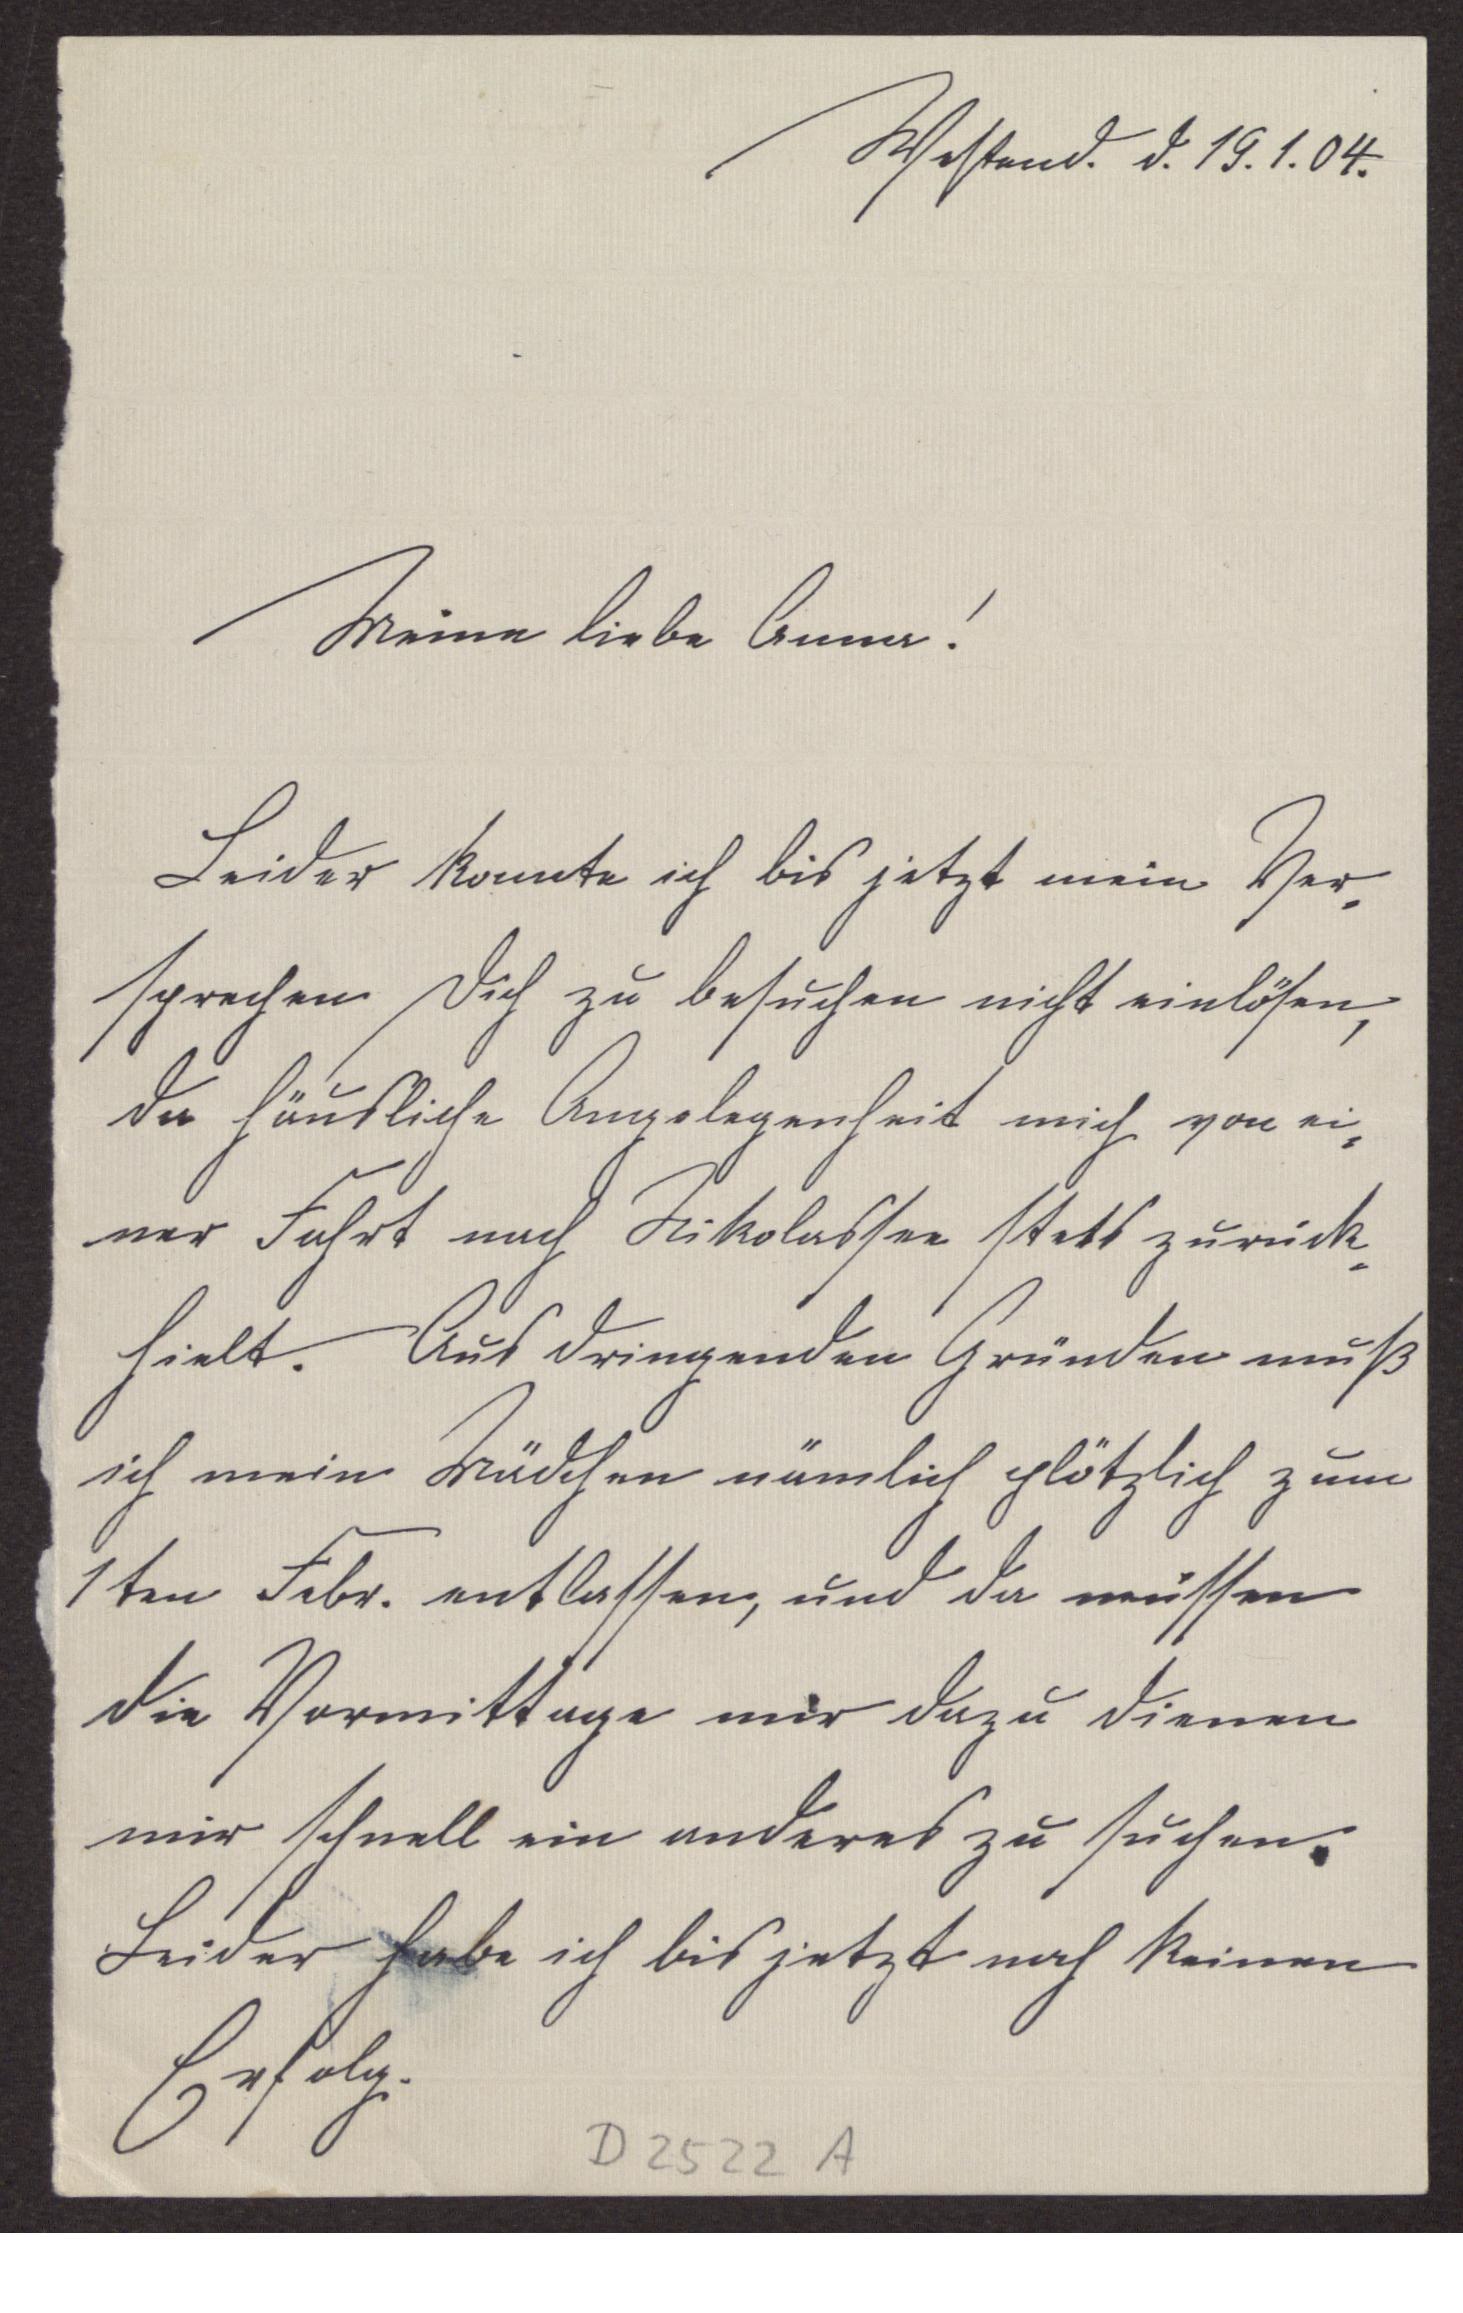 Westend. d. 19.1.04.
Meine liebe Anna!
Leider konnte ich bis jetzt mein Ver-
sprechen Dich zu besuchen nicht einlösen,
da häusliche Angelegenheit mich von ei-
ner Fahrt nach Nikolassee stets zurück-
hielt. Aus dringenden Gründen muß
ich mein Mädchen nämlich plötzlich zum
1ten Febr. entlassen, und da müssen
die Vormittage mir dazu dienen
mir schnell ein anderes zu suchen.
Leider habe ich bis jetzt noch keinen
Erfolg.
D 2522 A